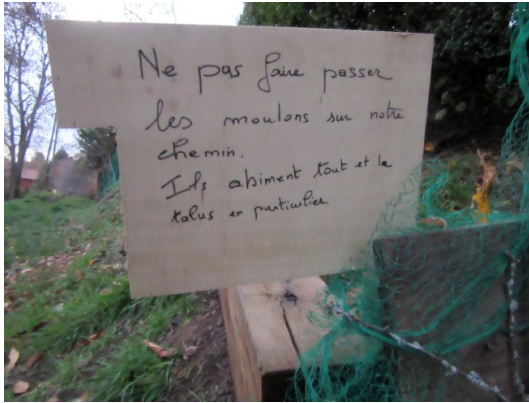 Ne pas faire passer
les moutons sur notre
chemin.
Ils abiment tout et le
talus en particulier